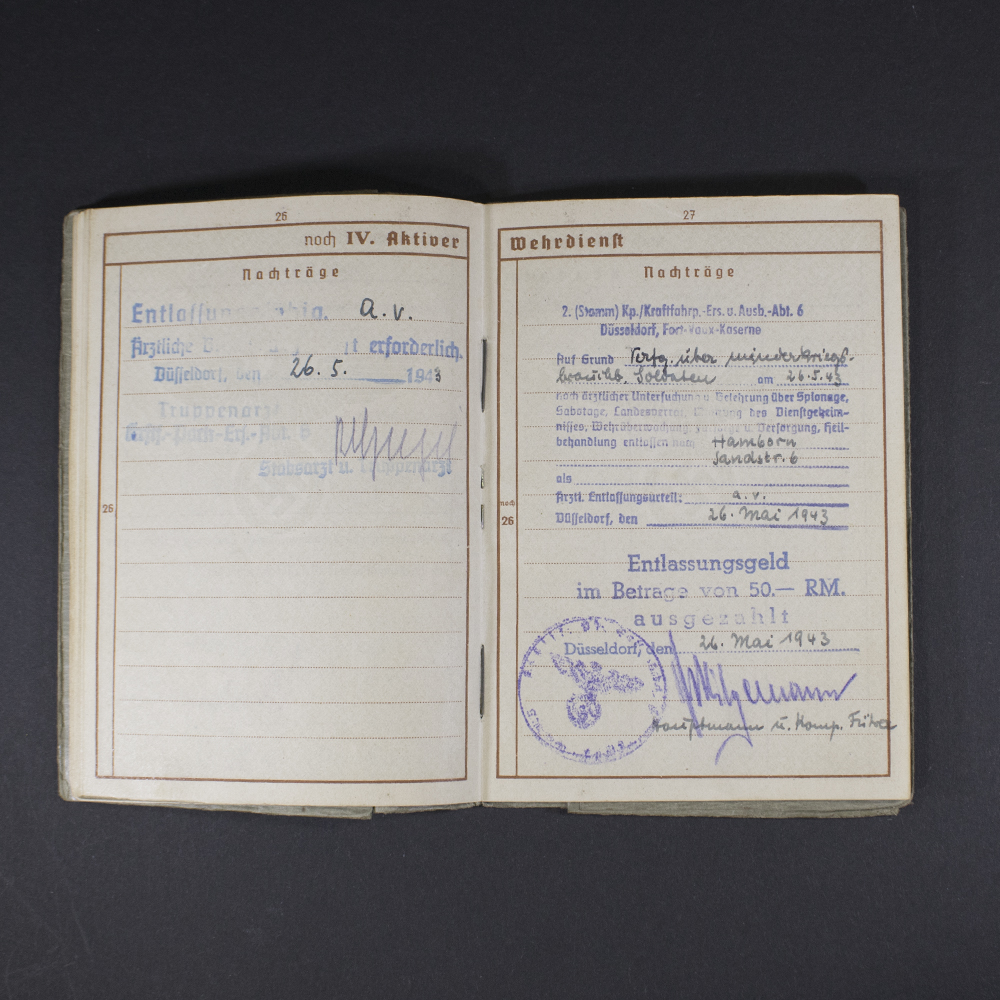 26
noch IV. Aktiver
Nachträge
a.v.
Ärztliche erforderlich.
Düsseldorf, den 26. 5. 1943
Truppenarzt
Stabsarzt u. Truppenarzt
26
27
Wehrdienst
Nachträge
2. (Stamm) Kp./Kraftfahrp.-Ers. u. Ausb.-Abt. 6
Düsseldorf, Fort-Vaux-Kaserne
Auf Grund Verfg. über minderkriegs-
brauchb. Soldaten am 26.5.43
nach ärztlicher Untersuchung u. Belehrung über Spionage,
Sabotage, Landesverrat, des Dienstgeheim-
nisses, Wehrüberwachung, u. Versorgung, Heil-
behandlung entlassen nach Hamborn
Sandstr. 6
als
Ärztl. Entlassungsurteil: a.v.
noch
26
Düsseldorf, den 26. Mai 1943
Entlassungsgeld
im Betrage von 50.— RM.
ausgezahlt
Düsseldorf, den 26. Mai 1943
Hauptmann u. Komp.